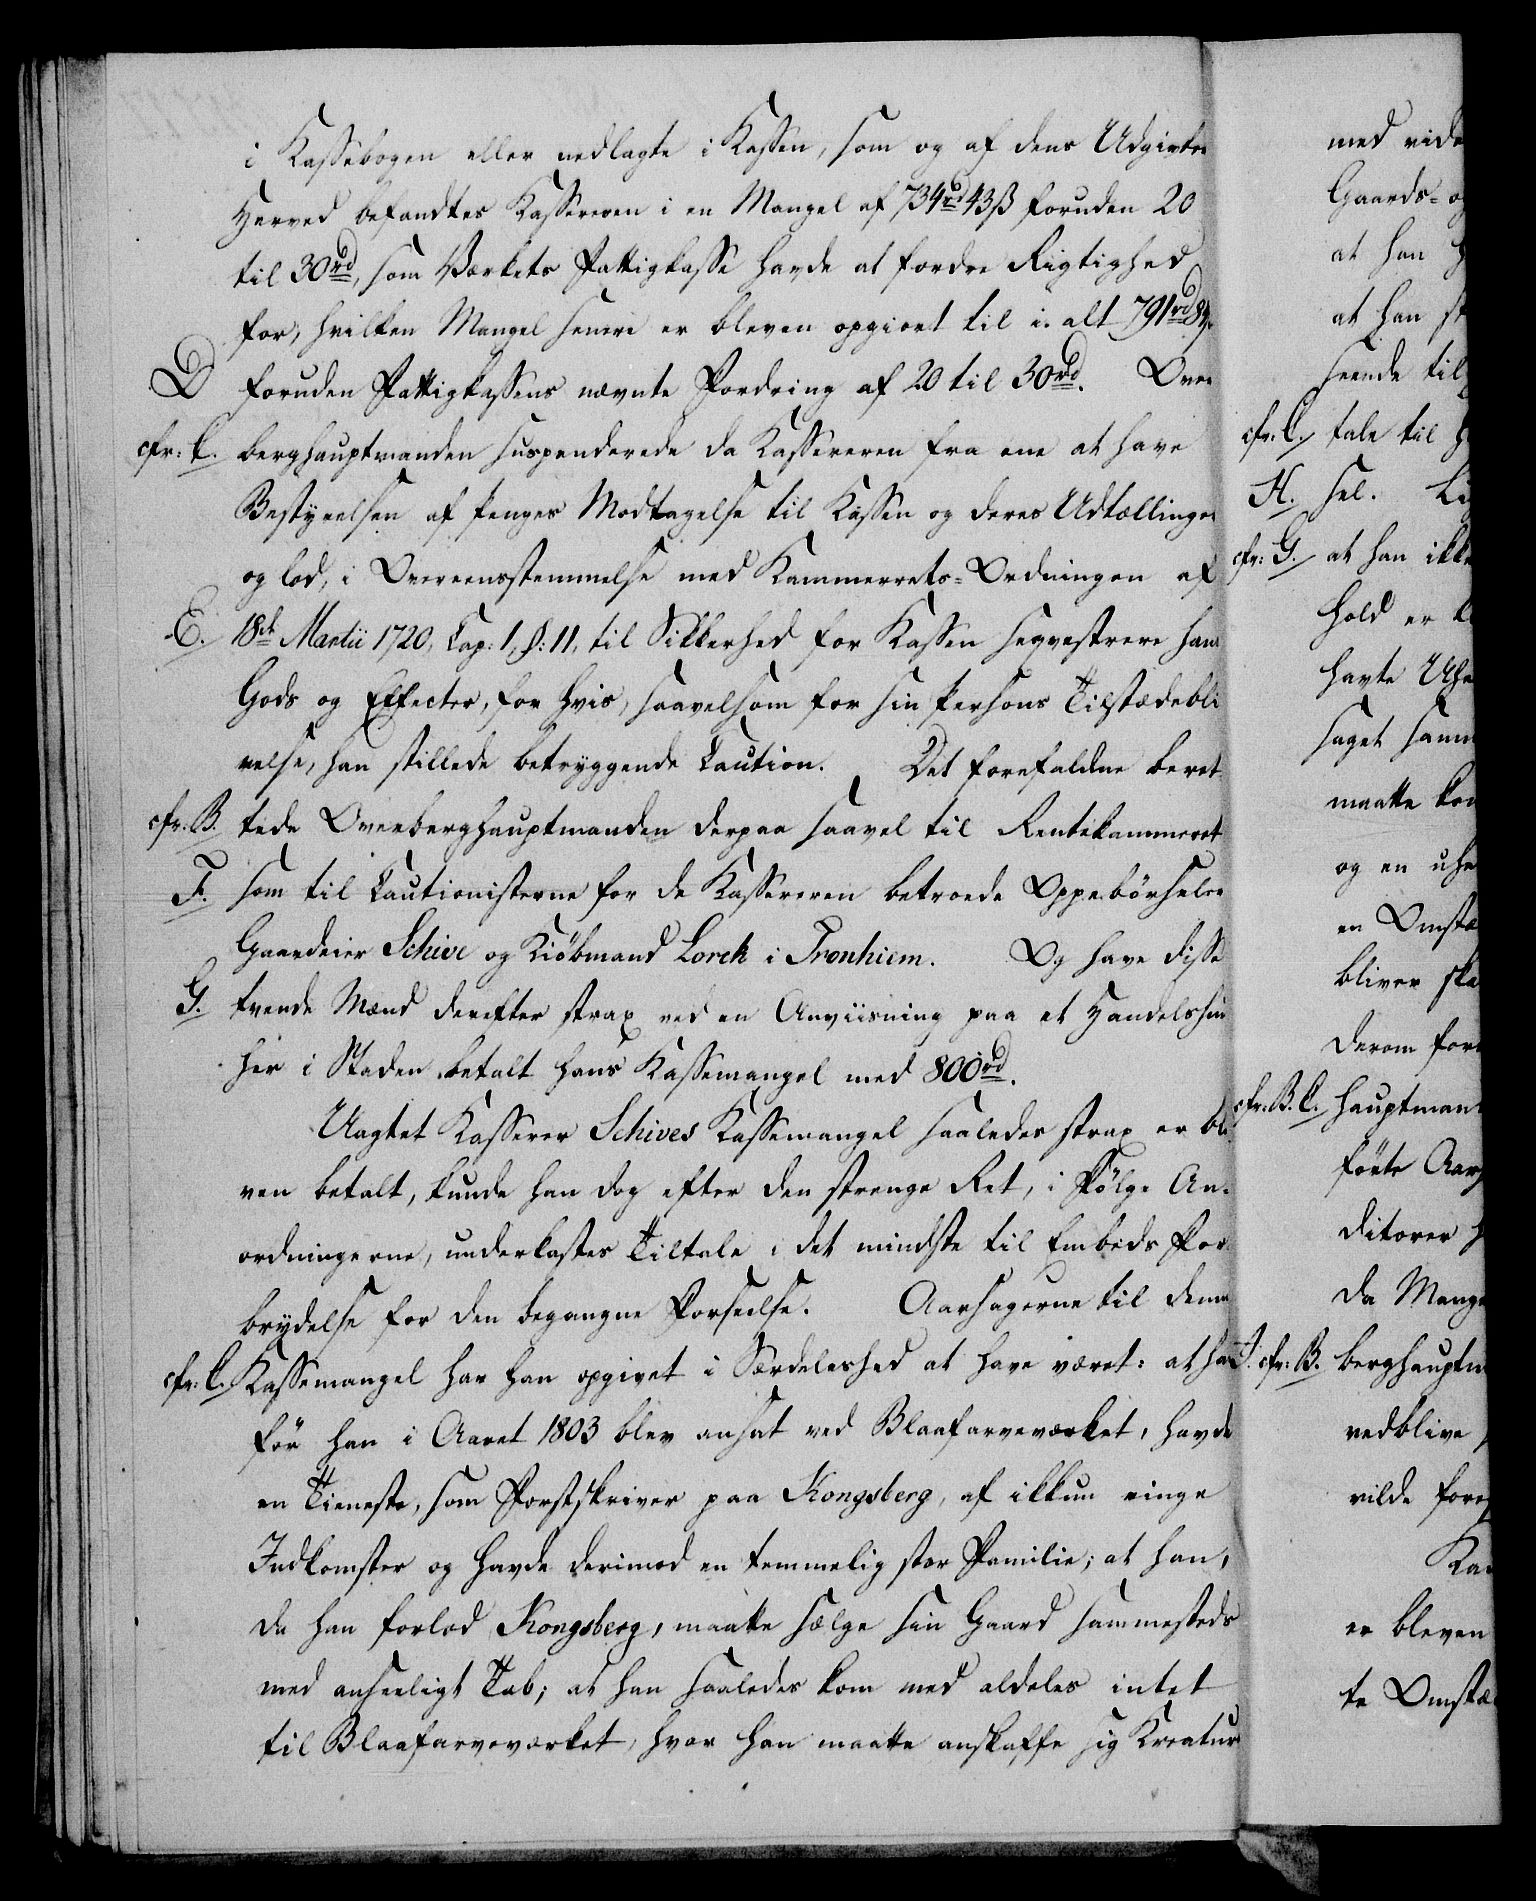 i Kassebogen eller nedlagte i Kassen, som og af dens Udgivter
Herved befandtes Kassereren i en Mangel af 734rd 43ß foruden 20
til 30rd, som Værkets Fattigkasse havde at fordre Rigtighed
for, hvilken Mangel senere er bleven opgiort til i alt 791rd 84
D foruden Fattigkassens nævnte Fordring af 20 til 30rd. Over
cfr: C. berghauptmanden suspenderede da Kassereren fra ene at have
Bestyrelsen af Penges Modtagelse til Kassen og deres Udtællinger
og lod, i Overeensstemmelse med Kammerrets-Ordningen af
E. 18de Martii 1720, Cap: 1, §: 11, til Sikkerhed for Kassen seqvestrere hans
Gods og Effecter, for hvis, saavelsom for sin Persons Tilstædebli
velse, han stillede betryggende Caution. Det forefaldne beret
cfr. B. tede Overberghauptmanden derpaa saavel til Rentekammeret
F. som til Cautionisterne for de Kassereren betroede Oppebörseler
Gaardeier Schive og Kiöbmand Lorck i Tronhiem. Og have disse
G. tvende Mænd derefter strax ved en Anviisning paa et Handelshuu
her i Staden betalt hans Kassemangel med 800rd.
Uagtet Kasserer Schives Kassemangel saaledes strax er ble
ven betalt, kunde han dog efter den strenge Ret, i Fölge An-
ordningerne, underkastes Tiltale i det mindste til Embeds For-
brydelse for den begangne Forseelse. Aarsagerne til denne
cfr. C. Kassemangel har han opgivet i Særdeleshed at have været: at han
för han i Aaret 1803 blev ansat ved Blaafarveværket, havde
en Tieneste, som Forstskriver paa Kongsberg, af ikkun ringe
Indkomster og havde derimod en temmelig stor Familie; at han,
da han forlod Kongsberg, maatte sælge sin Gaard sammesteds
med anseeligt Tab; at han saaledes kom med aldeles intet
til Blaafarveværket, hvor han maatte anskaffe sig Kreatur
med vide
Gaards- og
at han
at han
seende til
cfr: C. tale til
H. sel.
cfr: G. at han ikke
hold er
havte
saget samm
maatte
og en
en Omstæ
bliver ska
derom for
cfr. B. C. hauptman
förte Aar
ditorer
da Mange
J. cfr: B. berghauptm
vedblive
vilde fore
Ka
er bleven
te Omstæ